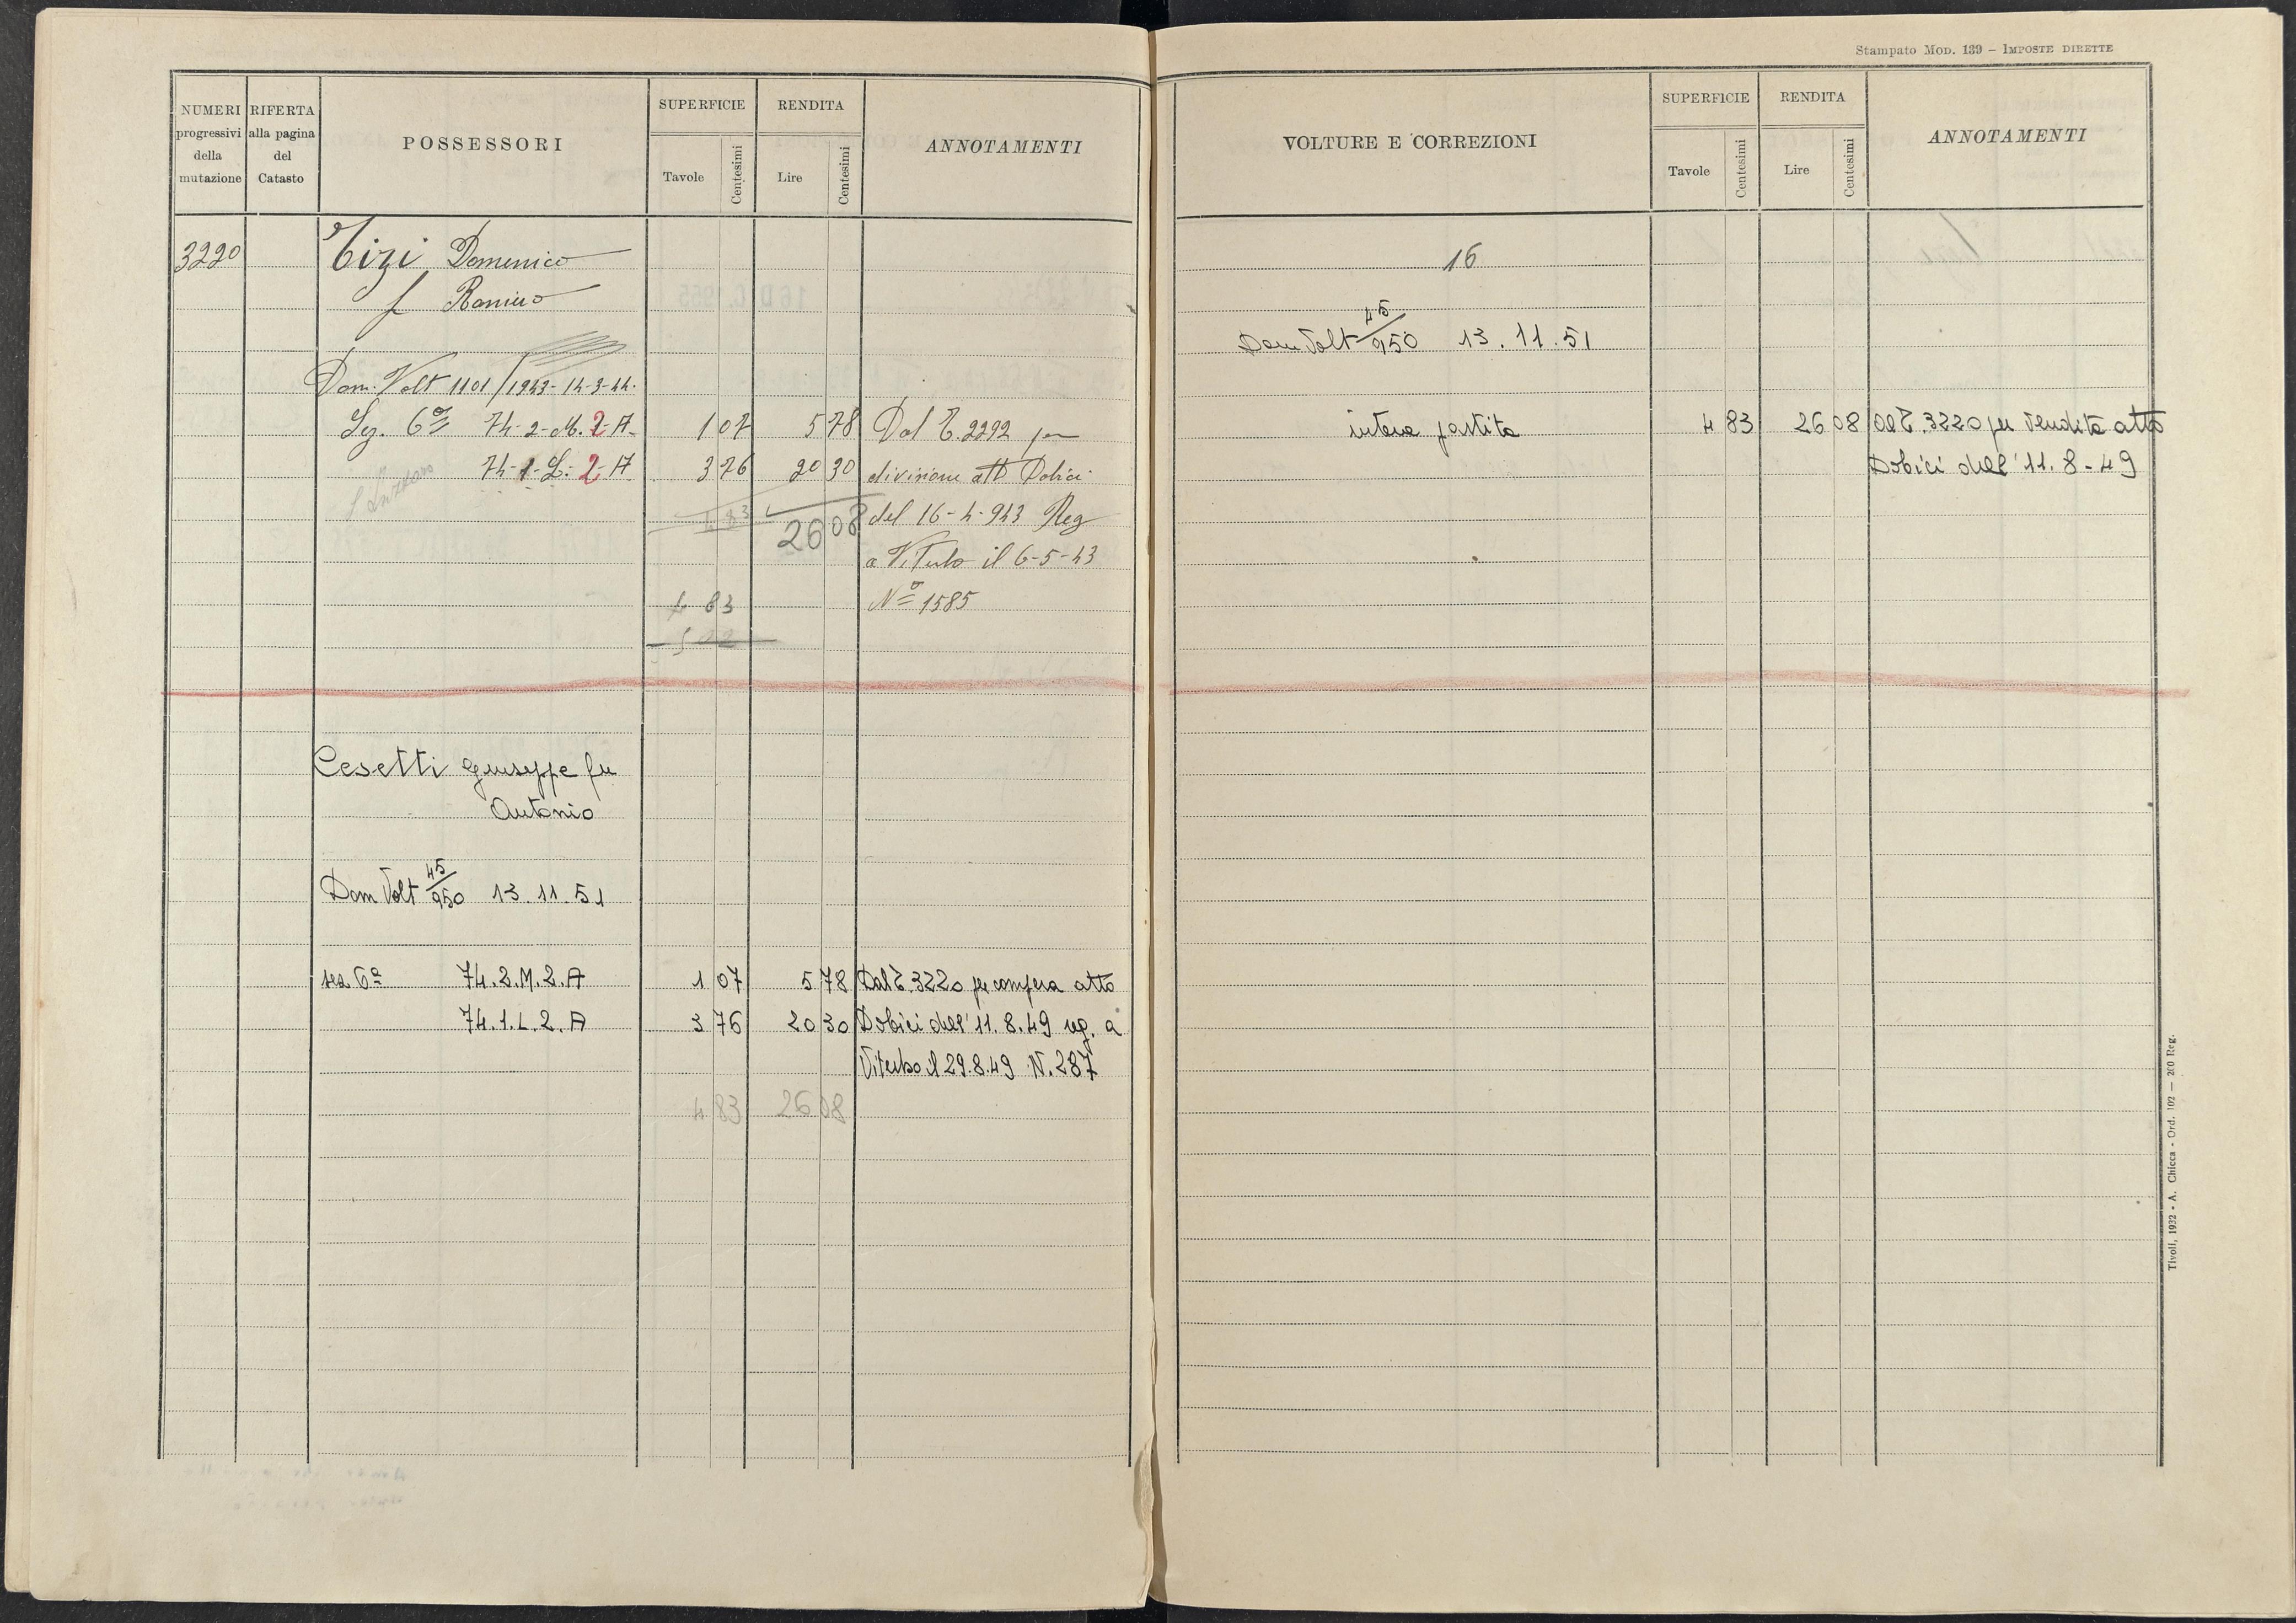 Stampato Mod. 139 – Imposte dirette
NUMERI progressivi della mutazione
RIFERTA alla pagina del Catasto
POSSESSORI
SUPERFICIE
Tavole
Centesimi
RENDITA
Lire
Centesimi
ANNOTAMENTI
3220 Tizi Domenico
f Ranieo
Dom. Volt 1101/1943 - 14-3-44.
Sez. 6ª 74-2-M.2-A 1 07 5 78 Dal T. 2292 per
74-1-L-2-A 3 76 20 30 divisione atto Dobici
4 83 26 08 del 16-4-943 Reg
a Viterbo il 6-5-43
4 83 Nº 1585
5 02
Cesetti Giuseppe fu
Antonio
Dom Volt 45/950 13.11.51
sez 6ª 74.2.M.2.A 1 07 5 78 Dal T. 3220 per compera atto
74.1.L.2.A 3 76 20 30 Dobici dell'11.8.49 reg. a
Viterbo il 29.8.49 N. 287
4 83 26 08
VOLTURE E CORREZIONI
SUPERFICIE
Tavole
Centesimi
RENDITA
Lire
Centesimi
ANNOTAMENTI
16
Dom Volt 45/950 13.11.51
intera partita 4 83 26 08 Al T. 3220 per vendita atto
Dobici dell'11.8-49
Tivoli, 1932 - A. Chicca - Ord. 102 — 200 Reg.